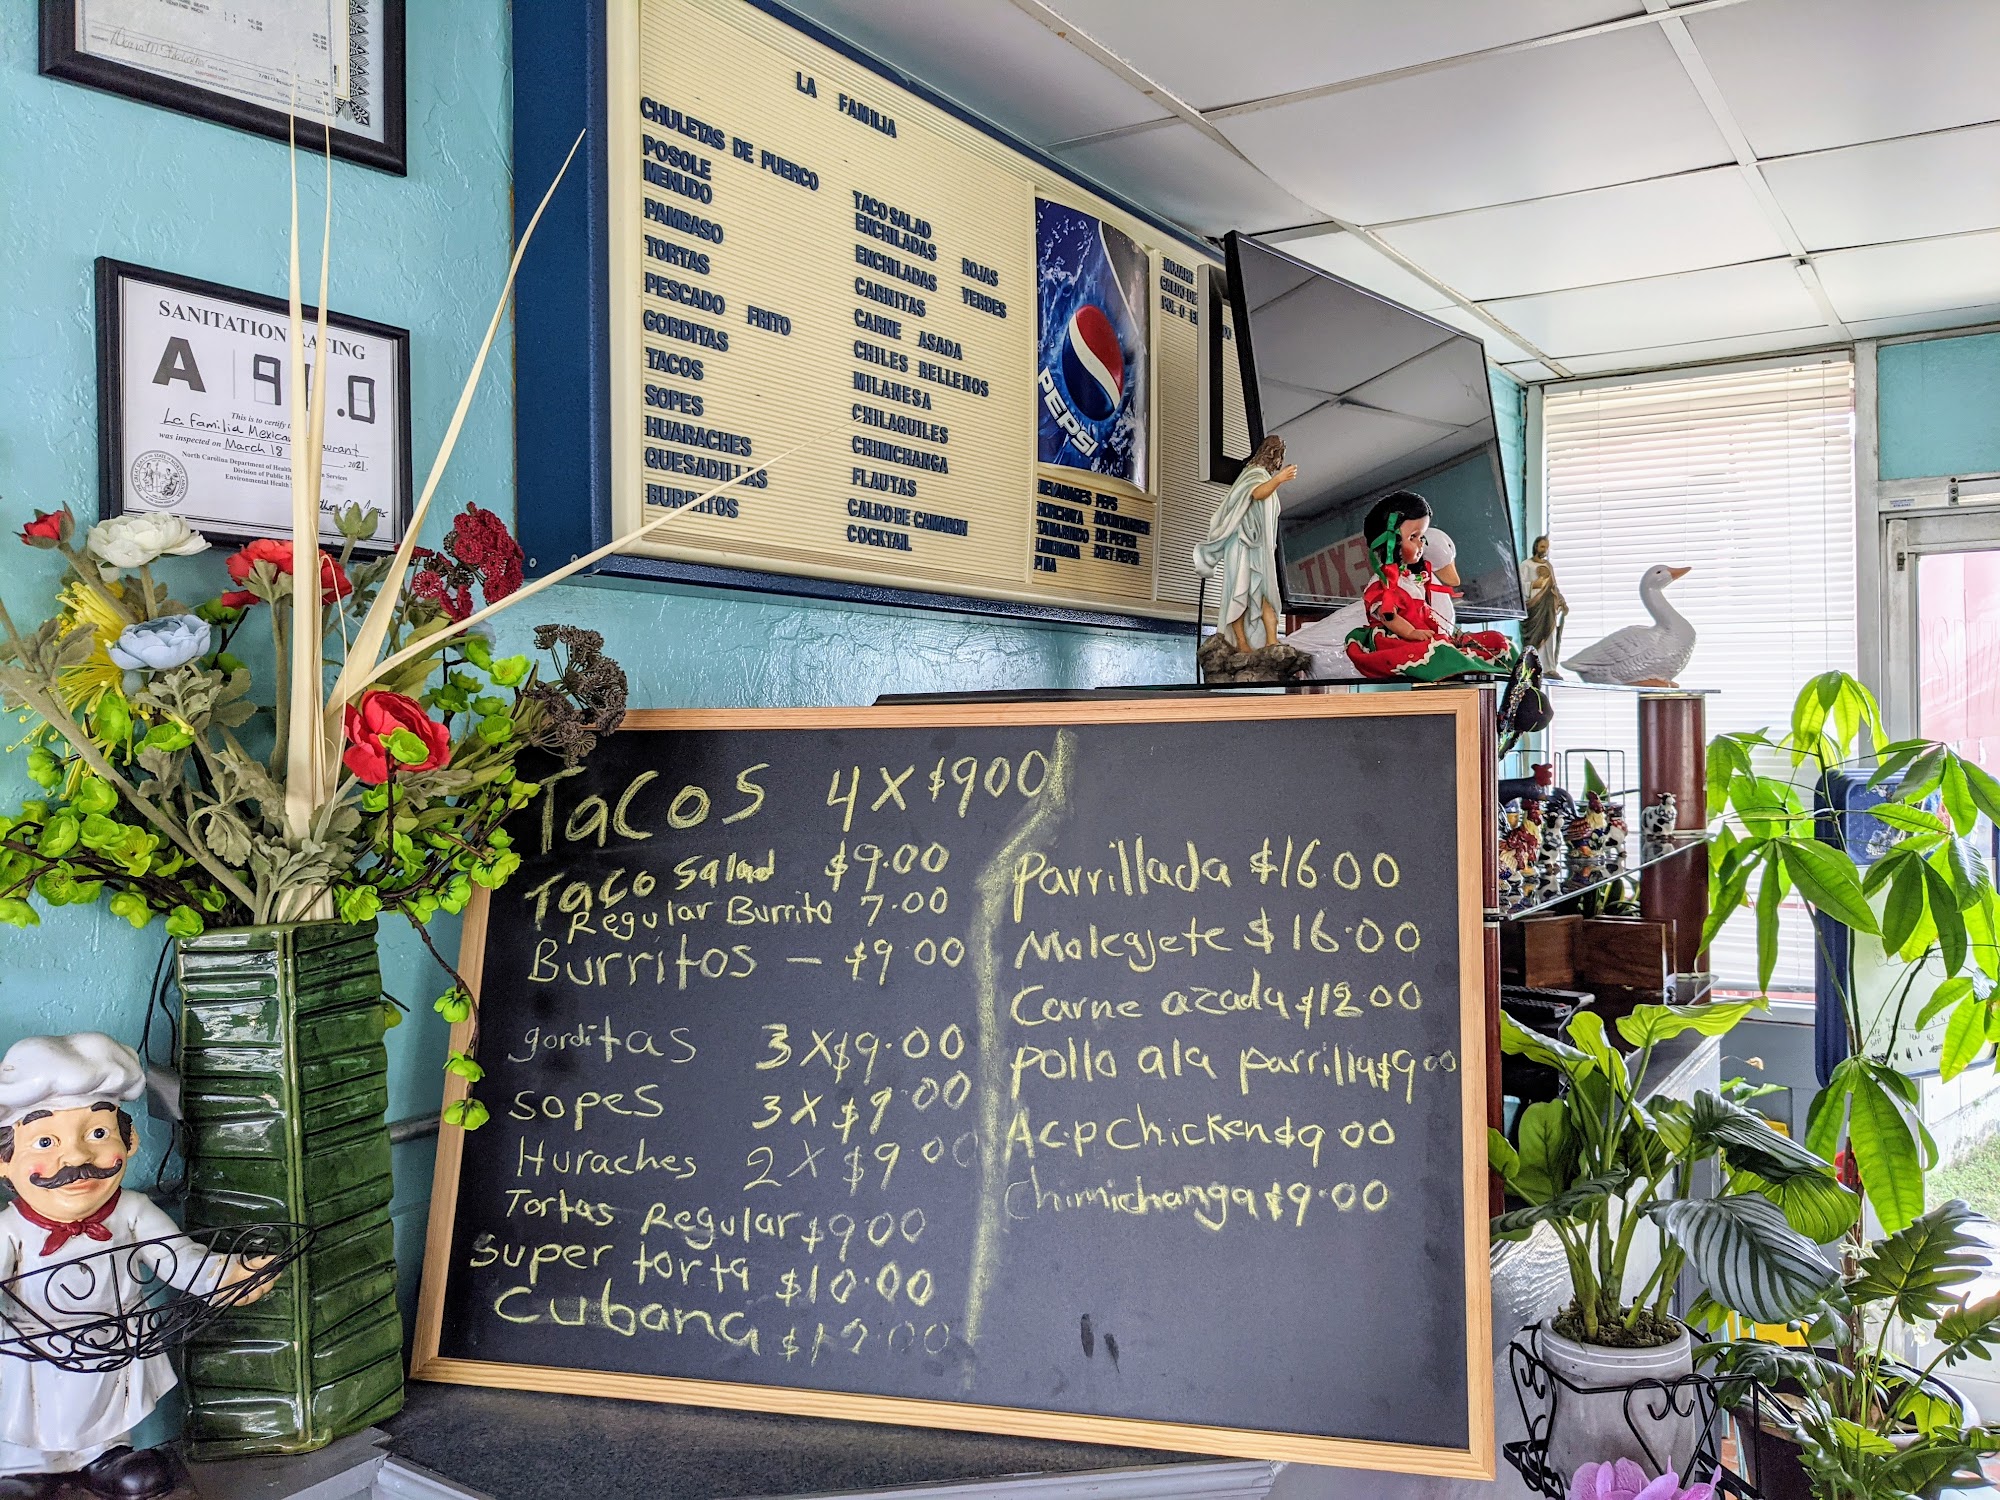 SANITATION RATING
A
.0
This is to certify
La Familia Mexican
was inspected on March 18, 2021
North Carolina Department of Health
Services
Division of Public
Environmental Health
LA FAMILIA
CHULETAS DE PUERCO
POSOLE
MENUDO
PAMBASO
TORTAS
PESCADO FRITO
GORDITAS
TACOS
SOPES
HUARACHES
QUESADILLAS
BURRITOS
TACO SALAD
ENCHILADAS ROJAS
ENCHILADAS VERDES
CARNITAS
CARNE ASADA
CHILES RELLENOS
MILANESA
CHILAQUILES
CHIMCHANGA
FLAUTAS
CALDO DE CAMARON
COCKTAIL
PEPSI
BEVARAGES PEPS
HORCHATA
TAMARINDO DR PEPER
DIET PEPSI
PINA
CALDO DE
EXIT
Tacos 4 X $900
Taco Salad $9.00
Regular Burrito 7.00
Burritos — $9.00
gorditas 3 X $9.00
Sopes 3 X $9.00
Huraches 2 X $9.00
Tortas Regular $9.00
Super torta $10.00
Cubana
Parrillada $16.00
Molcajete $16.00
Carne azada $12.00
pollo ala parrilla $9.00
Acp Chicken $9.00
Chimichanga $9.00